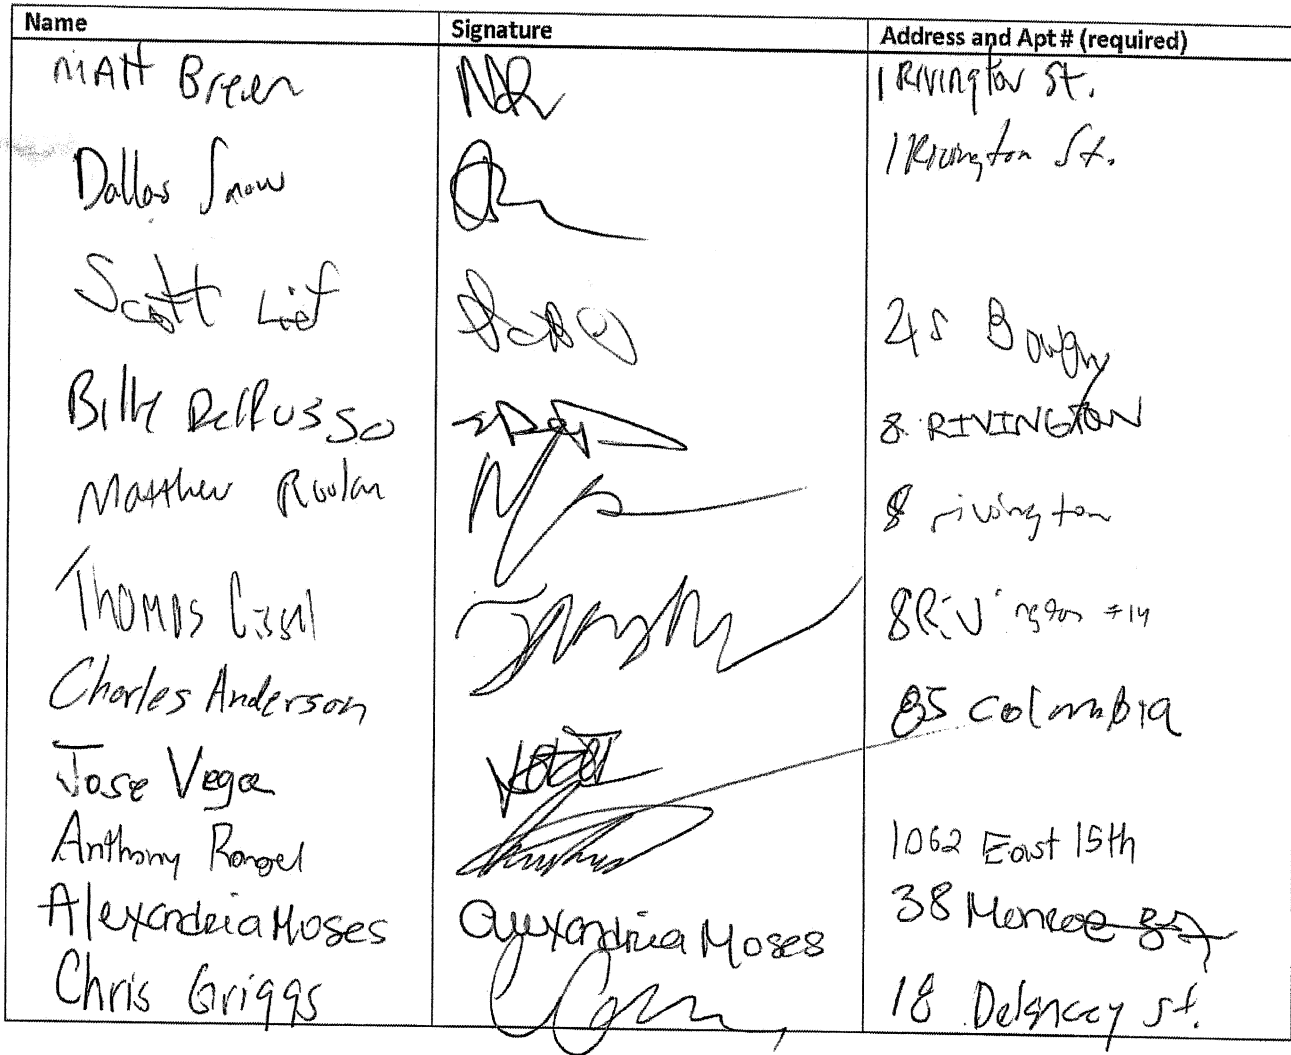 Name Signature Address and Apt # (required)
Matt Breen 1 Rivington St.
Dallas Snow 1 Rivington St.
Scott Lief Bowery
Billy DelRusso 8 RIVINGTON
Matthew 8 rivington
Thomas 8 Rivington #14
Charles Anderson 85 Colombia
Jose Vega
Anthony Rangel 1062 East 15th
Alexandria Moses Alexandria Moses 38 Monroe
Chris Griggs 18 Delancey St.